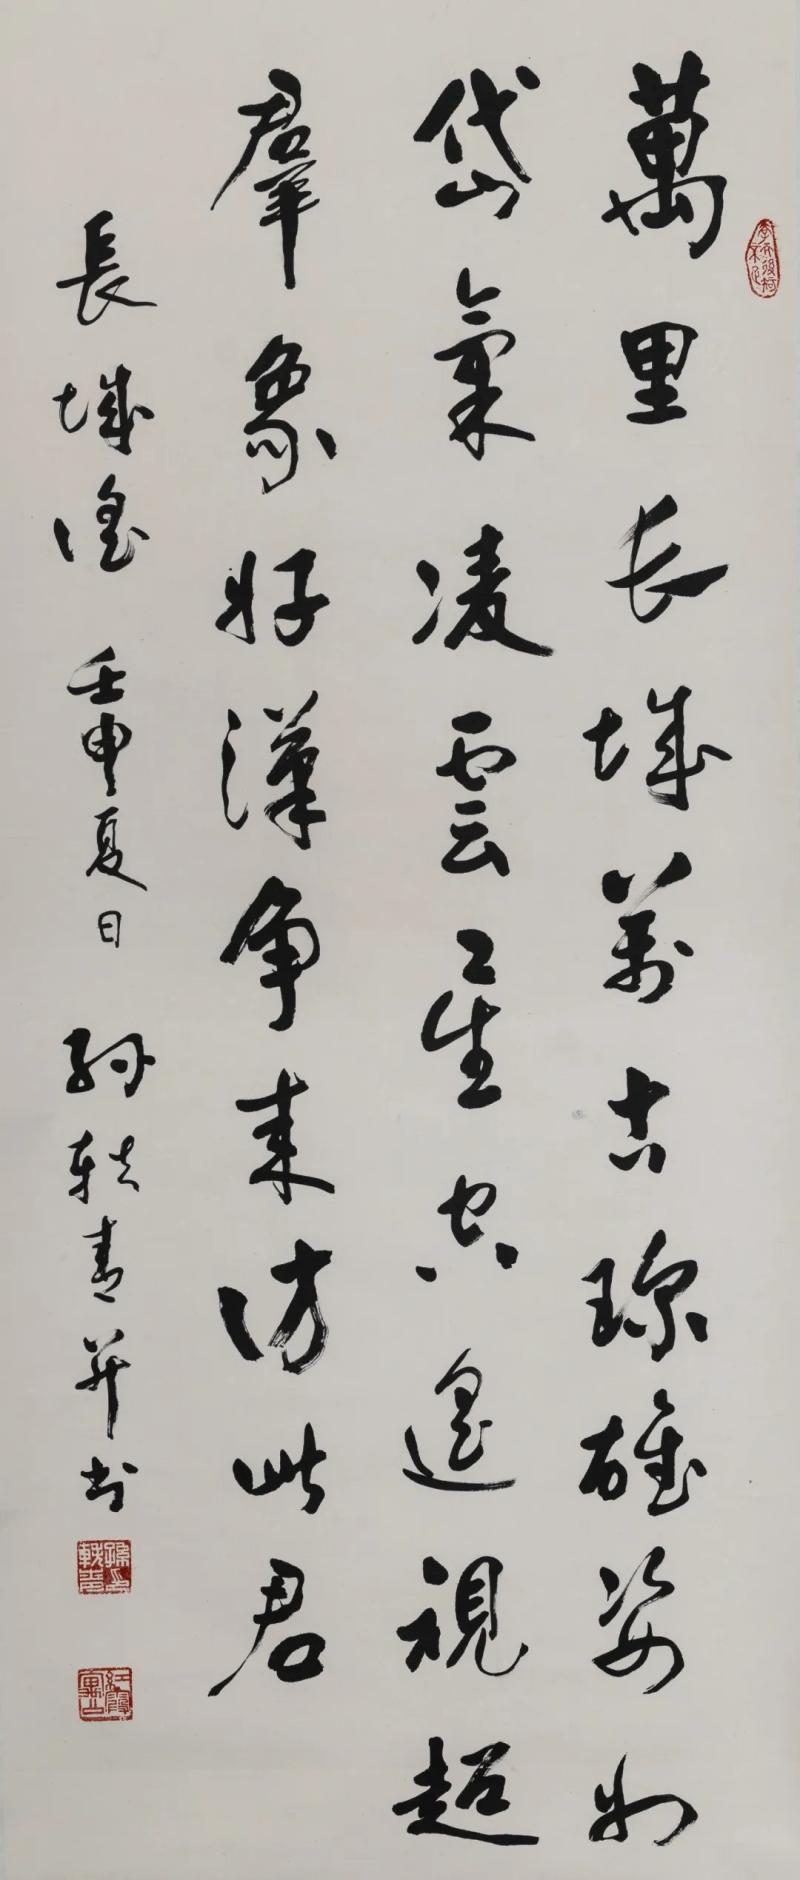 萬里長城萬古珍雄姿如
岱氣凌雲星空遙視超
羣象好漢爭來訪此君
長城謠 壬申夏日 孫軼青并書